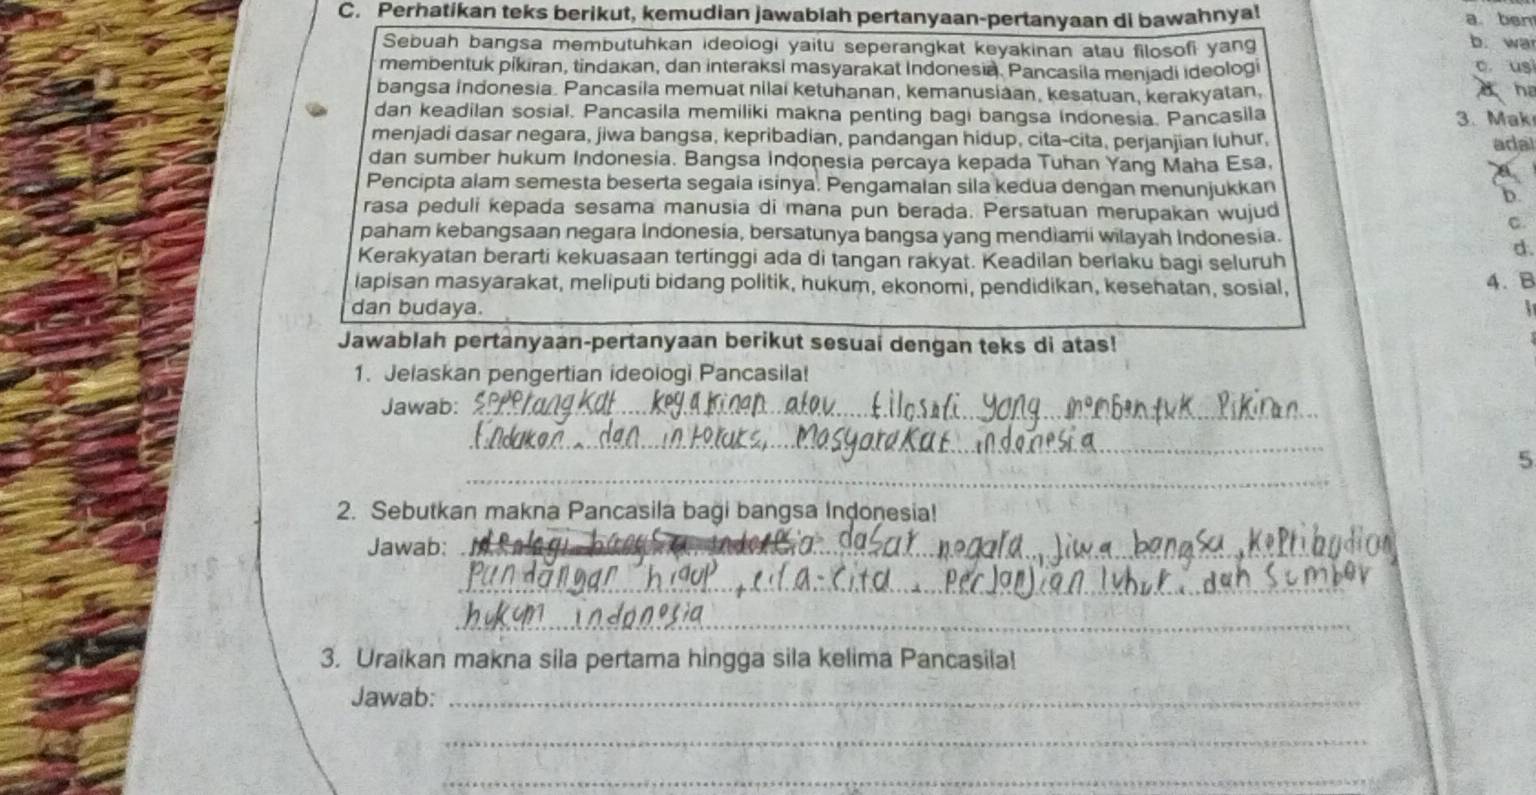 C. Perhatikan teks berikut, kemudian jawablah pertanyaan-pertanyaan di bawahnya!
Sebuah bangsa membutuhkan ideologi yaitu seperangkat keyakinan atau filosofi yang
membentuk pikiran, tindakan, dan interaksi masyarakat Indonesia. Pancasila menjadi ideologi
bangsa Indonesia. Pancasila memuat nilai ketuhanan, kemanusiaan, kesatuan, kerakyatan,
dan keadilan sosial. Pancasila memiliki makna penting bagi bangsa Indonesia. Pancasila
menjadi dasar negara, jiwa bangsa, kepribadian, pandangan hidup, cita-cita, perjanjian luhur,
dan sumber hukum Indonesia. Bangsa Indonesia percaya kepada Tuhan Yang Maha Esa,
Pencipta alam semesta beserta segala isinya. Pengamalan sila kedua dengan menunjukkan
rasa peduli kepada sesama manusia di mana pun berada. Persatuan merupakan wujud
paham kebangsaan negara Indonesia, bersatunya bangsa yang mendiami wilayah Indonesia.
Kerakyatan berarti kekuasaan tertinggi ada di tangan rakyat. Keadilan berlaku bagi seluruh
lapisan masyarakat, meliputi bidang politik, hukum, ekonomi, pendidikan, kesehatan, sosial,
dan budaya.
Jawablah pertanyaan-pertanyaan berikut sesuai dengan teks di atas!
1. Jelaskan pengertian ideologi Pancasila!
Jawab: seperangkat keyakinan atau filosofi yang membentuk Pikiran
tindakan, dan masyarakat indonesia
2. Sebutkan makna Pancasila bagi bangsa Indonesia!
Jawab: dasar negara, Jiwa bangsa, Kepribadian
Pandangan hidup, cita-cita, perjanjian luhur, dan sumber
hukum indonesia
3. Uraikan makna sila pertama hingga sila kelima Pancasila!
Jawab:
a. ben
b. wa
c. us
ha
3. Mak
adal
b.
c.
d.
4. B
5